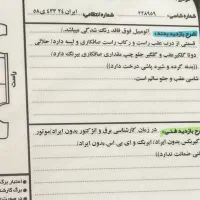 شماره شاسی: ۲۲۸۹۵۹ شماره انتظامی: ایران ۲۴ ۴۳۳ ی ۵۸
شرح بازدید بدنه: اتومبیل فوق فاقد رنگ شدگی میباشد./
قسمتی از درب عقب راست و رکاب راست صافکاری و لیسه دارد/ حلالی
دوتا گلگیر عقب و گلگیر جلو چپ مقداری صافکاری بیرنگ دارد/
((بدنه گرده و شیره پاشی درخت دارد))
شاسی عقب و جلو سالم است.
راست
شرح بازدید فنی: در زمان کارشناسی برق و انژکتور بدون ایراد/موتور
گیربکس بدون ایراد/ ایربگ و ای بی اس بدون ایراد/
ضمانت ندارد))
اعتبار برگ